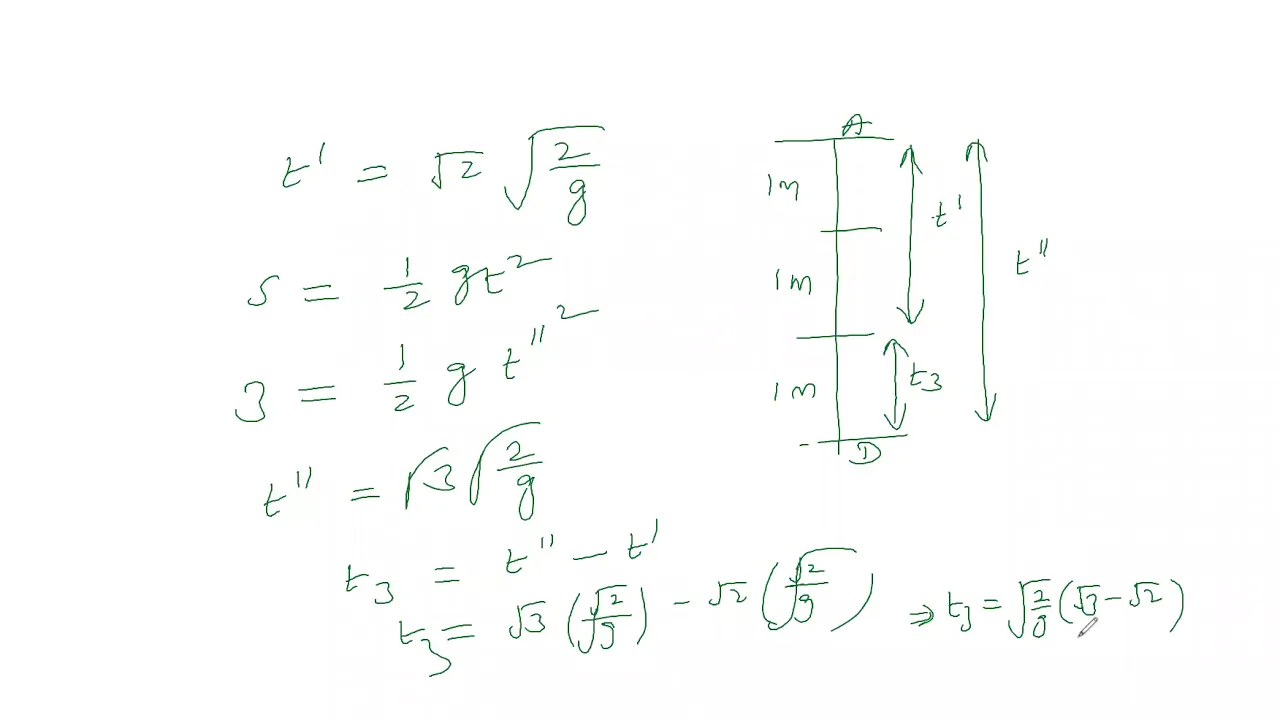 t' = √2 √(2/g)
s = 1/2 gt²
3 = 1/2 g t''²
t'' = √3 √(2/g)
t₃ = t'' − t'
t₃ = √3 (√2/g) − √2 (√2/g) ⇒ t₃ = √(2/g) (√3 − √2)
A
1m
t'
1m
t''
1m
t₃
D